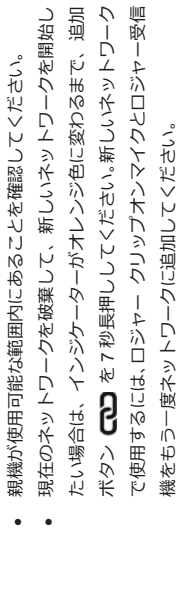 • 親機が使用可能な範囲内にあることを確認してください。
• 現在のネットワークを破棄して、新しいネットワークを開始し
たい場合は、インジケーターがオレンジ色に変わるまで、追加
ボタン を 7 秒長押ししてください。新しいネットワーク
で使用するには、ロジャー クリップオンマイクとロジャー受信
機をもう一度ネットワークに追加してください。